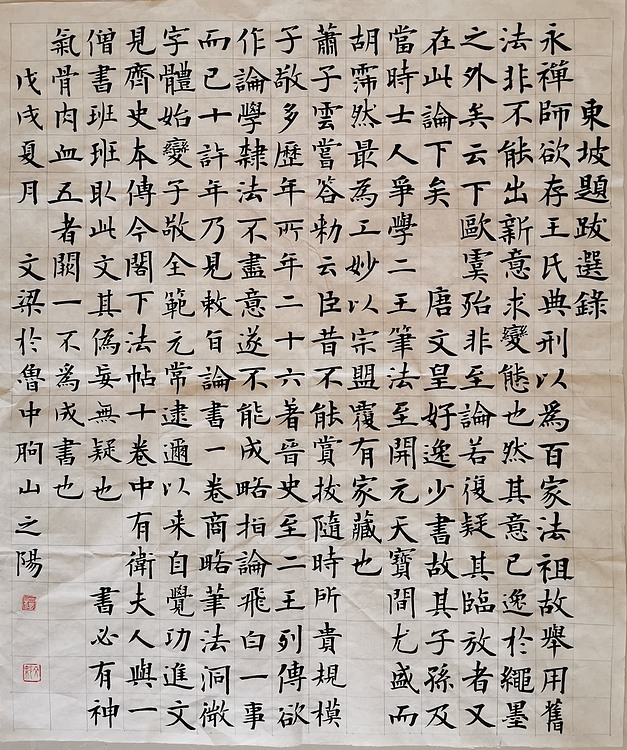 東坡題跋選錄
永禪師欲存王氏典刑以為百家法祖故舉用舊
法非不能出新意求變態也然其意已逸於繩墨
之外矣云下歐虞殆非至論若復疑其臨放者又
在此論下矣 唐文皇好逸少書故其子孫及
當時士人爭學二王筆法至開元天寶間尤盛而
胡霈然最為工妙以宗盟覆有家藏也
蕭子雲嘗答勅云臣昔不能賞拔隨時所貴規模
子敬多歷年所年二十六著晉史至二王列傳欲
作論學隸法不盡意遂不能成略指論飛白一事
而已十許年乃見敕旨論書一卷商略筆法洞微
字體始變子敬全範元常逮邇以来自覺功進文
見齊史本傳今閣下法帖十卷中有衛夫人與一
僧書班班取此文其偽妄無疑也 書必有神
氣骨肉血五者闕一不為成書也
戊戌夏月 文梁於魯中朐山之陽